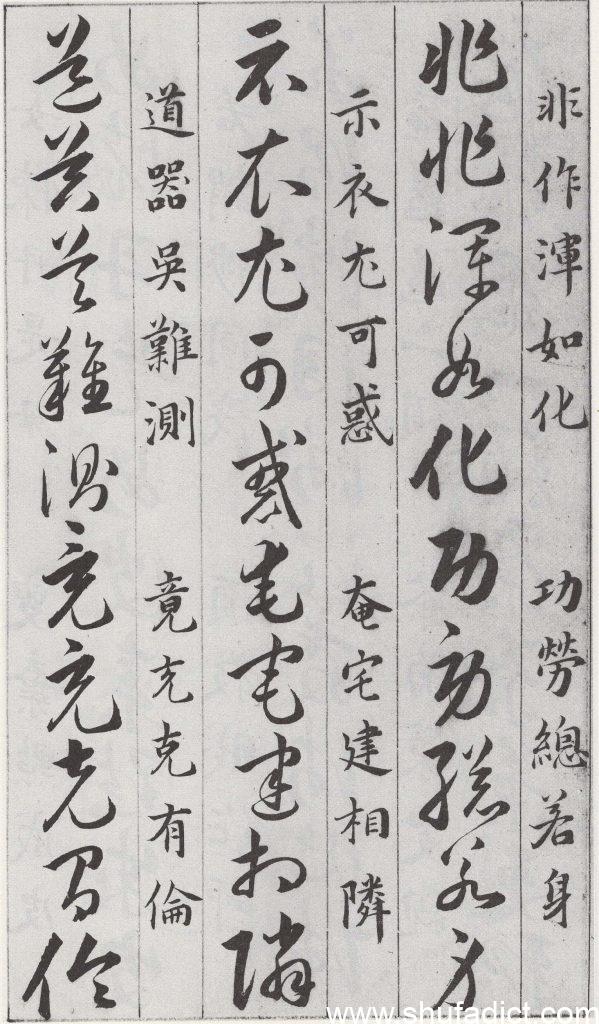 非作渾如化 功勞總若身
非作渾如化功勞總若身
示衣尤可惑 奄宅建相隣
示衣尤可惑奄宅建相隣
道器吳難測 竟充克有倫
道器吳難測竟充克有倫
www.shufadict.com